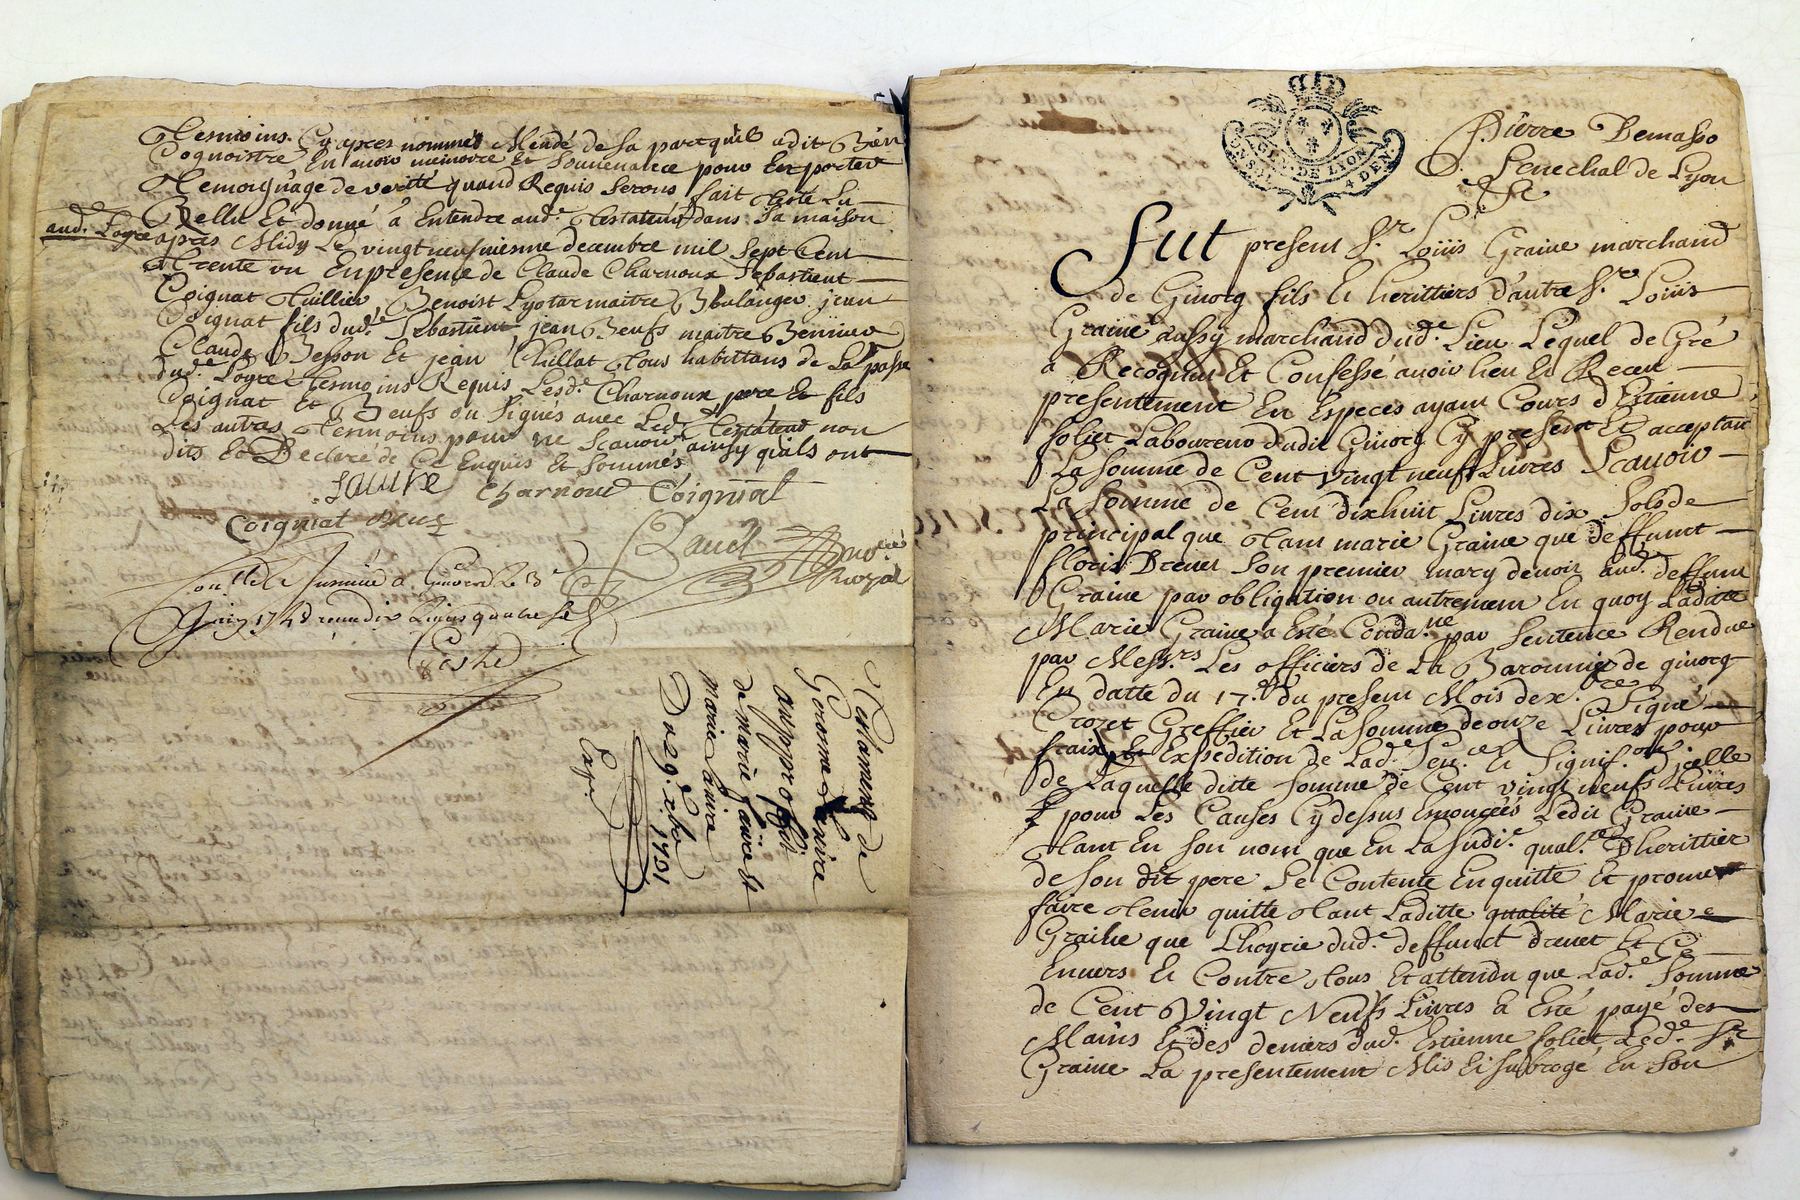 Tesmoins Cy apres nommés Mandé de sa part quil a dit Bien
Cognoistre En avoir memoire Et Souvenance pour En porter
Temoignage de verité quand Requis Serons fait Leu
Rellu Et donné à Entendre aud.e Testateur dans sa maison
aud. Loyre apres Midy Le vingt neufvieme decembre mil Sept Cent
Trente un En presence de Claude Charnoux Sebastient
Coignat Tuillier Benoist Lyotar maitre Boulanger jean
Coignat fils dud.e Sebastient jean Beufs maitre
Claude Besson Et jean Chillat Tous habittans de La
dud.e Loyre Tesmoins Requis Lesd.e Charnoux pere Et fils
Coignat Et Beufs on Signés avec Led.e Testateur non
Les autres Tesmoins pour ne Scavoir ainsy quils ont
dits Et Declaré de Ce Enquis Et Sommés
Charnoux Coignat
Coigniat
not.re
Royal
Testament de
de marie faivre et
marie
Du 29 xbre 1731
Exp.
GEN. DE LYON
4 DEN.
Pierre Demasso
Senechal de Lyon
Fut present S.r Loüis Graine marchand
de Givorg fils Et herittiers d'autre S.r Loüis
Graine aussy marchand dud.e Lieu Lequel de Gré
a Recognu Et Confessé avoir heu Et Receu
presentement En Especes ayant Cours d'Estienne
foliet Laboureur dudit Givorg Cy present Et acceptant
La Somme de Cent vingt neuf Livres Scavoir
La Somme de Cent dix huit Livres dix Sols de
principal que Tant marie Graine que deffunct
floris Drevet Son premier mary devoit aud.e deffunt
Graine par obligation ou autrement En quoy Laditte
Marie Graine a Esté Conda.ne par Sentence Rendue
par Mess.rs Les officiers de La Baronnie de givorg
En datte du 17.e du present Mois de x.bre Signé
Crozet Greffier Et La Somme de onze Livres pour
fraix Et Expedition de Lad.e Sen.ce Et Signif.on d'jcelle
de Laquelle ditte Somme de Cent vingt neufs Livres
Et pour Les Causes Cy dessus Enoncées Ledit Graine
Tant En Son nom que En La Sudi.e qual.té d'herittier
de Son dit pere Se Contente En quitte Et promet
faire Tenir quitte Tant Laditte qualité Marie
Graine que Lhoyrie dud.e deffunct drevet Et Ce
Envers Et Contre Tous Et attendu que Lad.e Somme
de Cent Vingt Neufs Livres a Esté payé des
Mains Et des deniers dud.e Estienne foliet Led.e S.r
Graine La presentement Mis Et Subrogé En Son